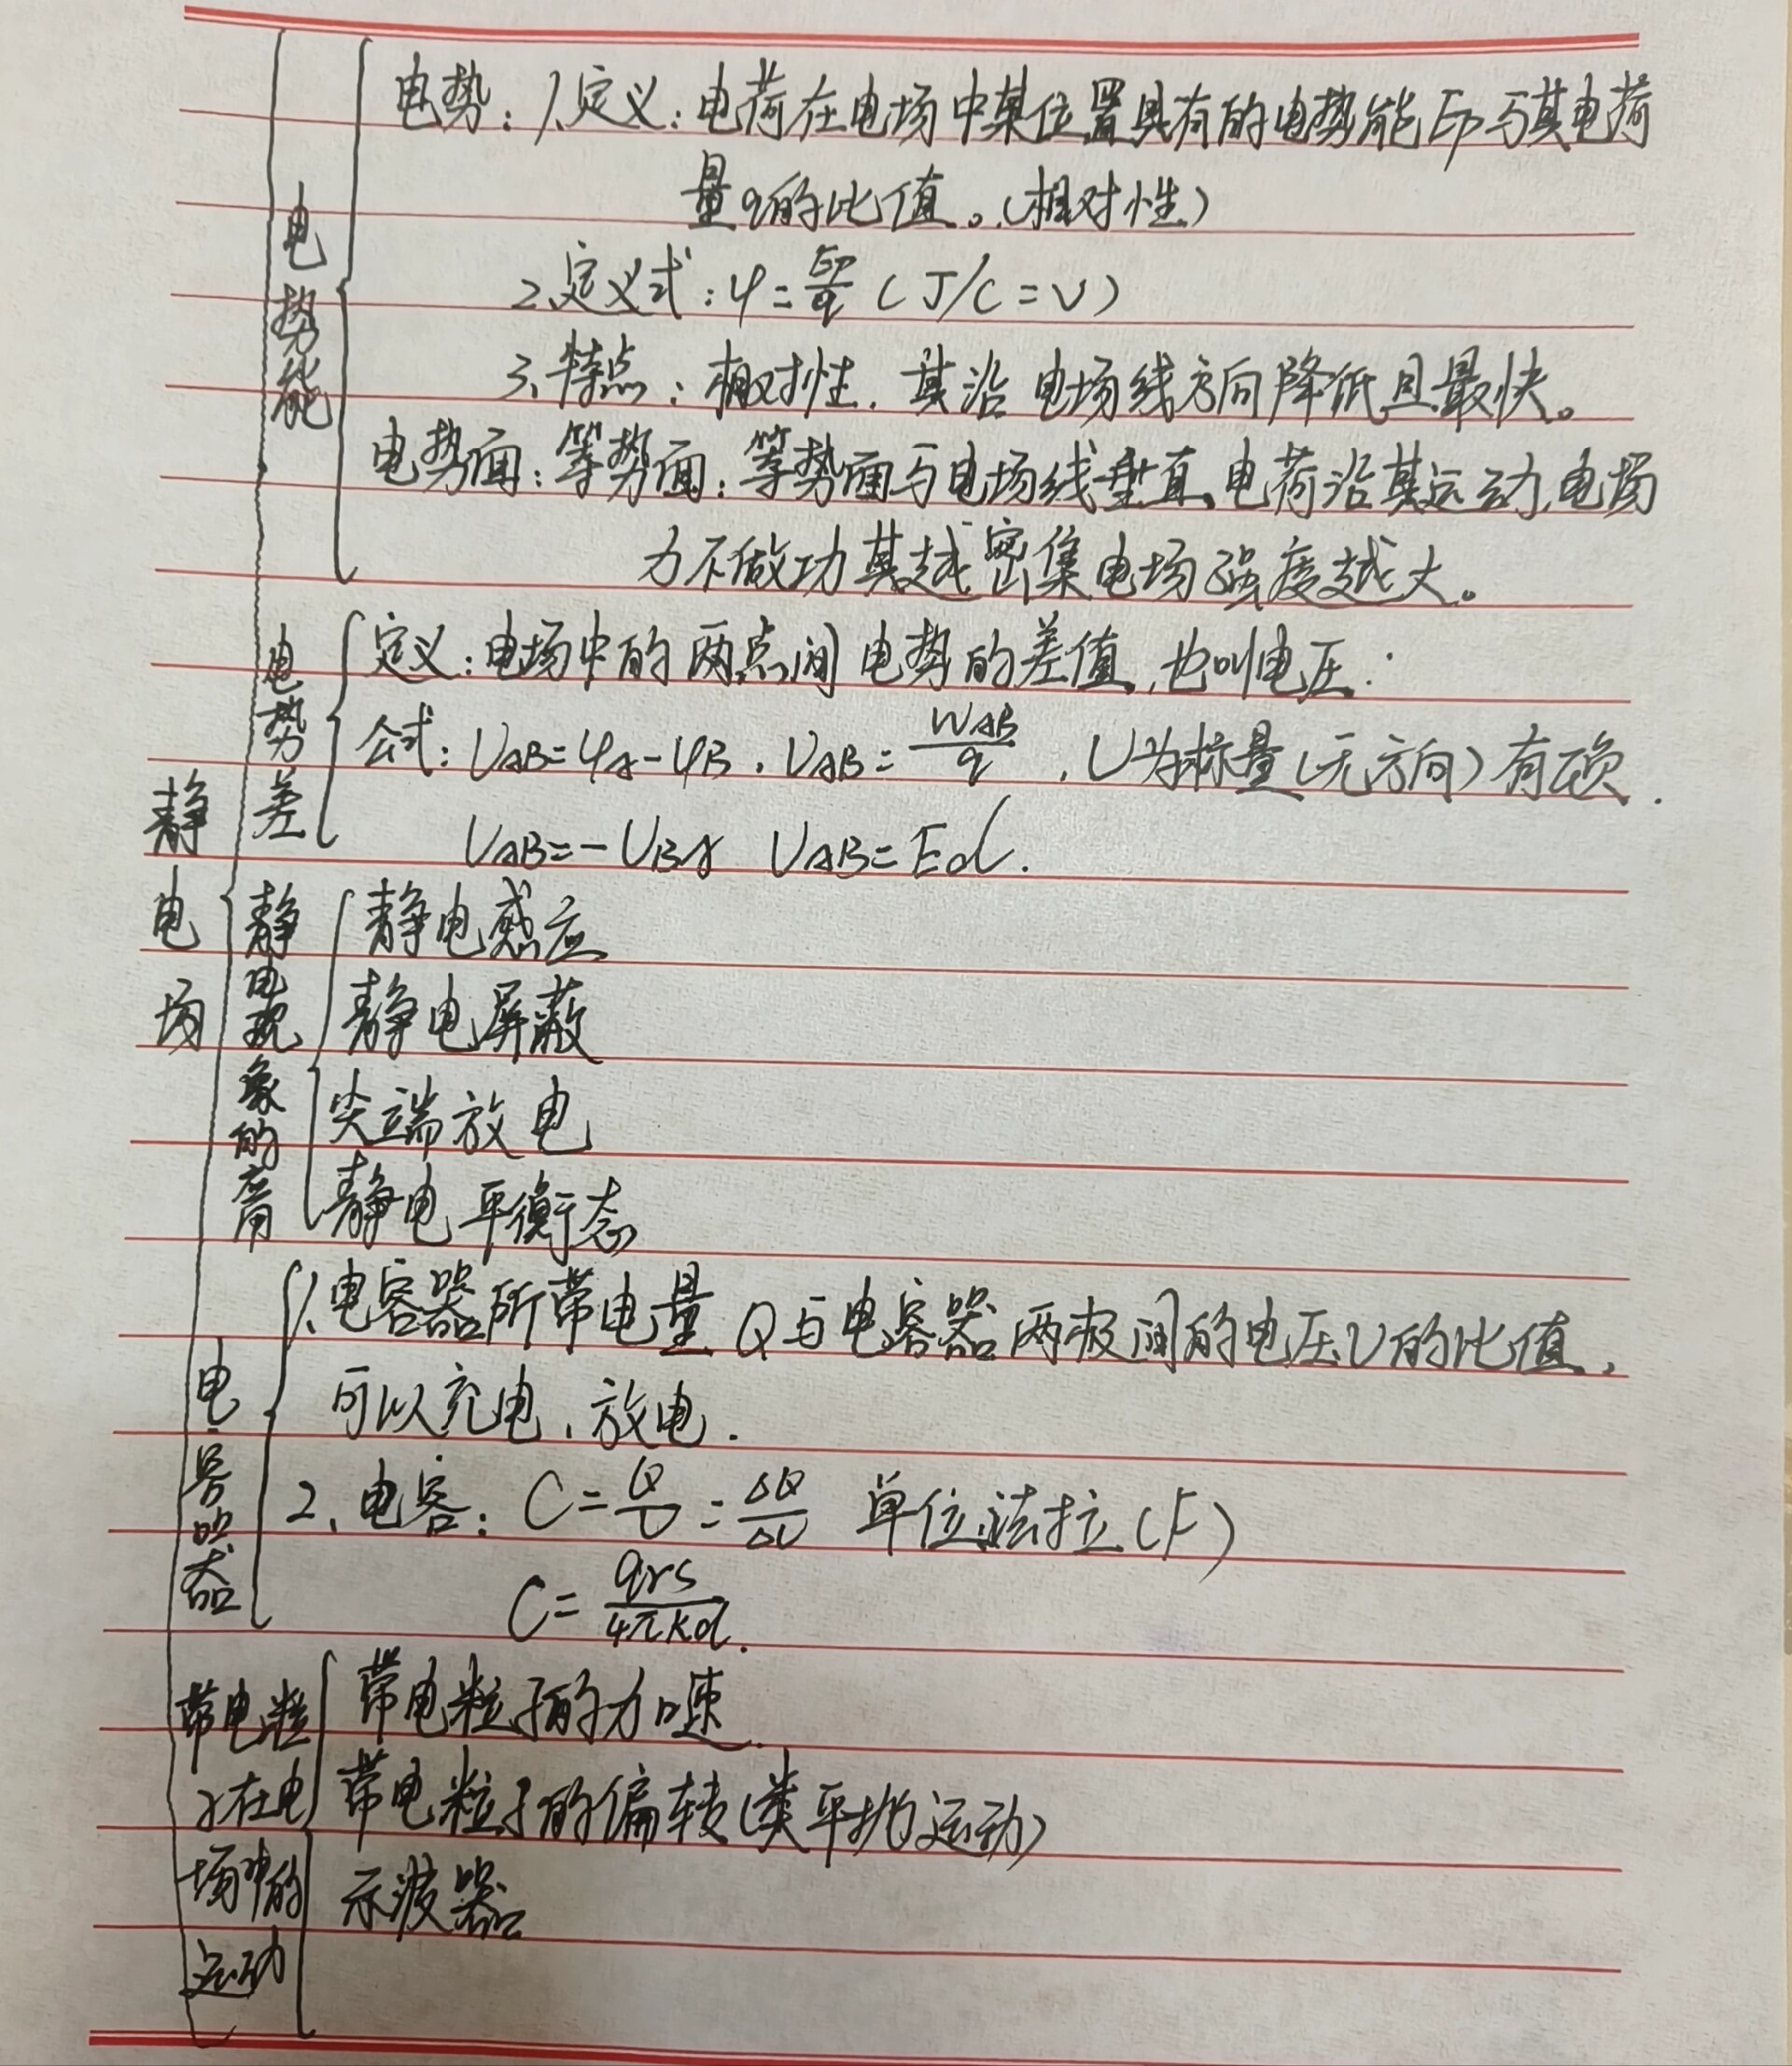 静电场
电势能
电势：1、定义：电荷在电场中某位置具有的电势能Ep与其电荷
量q的比值。（相对性）
2、定义式：φ=Ep/q（J/C=V）
3、特点：相对性，其沿电场线方向降低且最快。
电势面：等势面：等势面与电场线垂直，电荷沿其运动，电场
力不做功其越密集电场强度越大。
电势差
定义：电场中的两点间电势的差值，也叫电压.
公式：UAB=φA-φB，UAB=WAB/q，U为标量（无方向）有正负.
UAB=-UBA UAB=Ed.
静电现象的应用
静电感应
静电屏蔽
尖端放电
静电平衡态
电容器
1、电容器所带电量Q与电容器两极间的电压U的比值，
可以充电、放电.
2、电容：C=Q/U=ΔQ/ΔU 单位法拉（F）
C=εrs/4πkd.
带电粒
子在电
场中的
运动
带电粒子的加速.
带电粒子的偏转（类平抛运动）
示波器